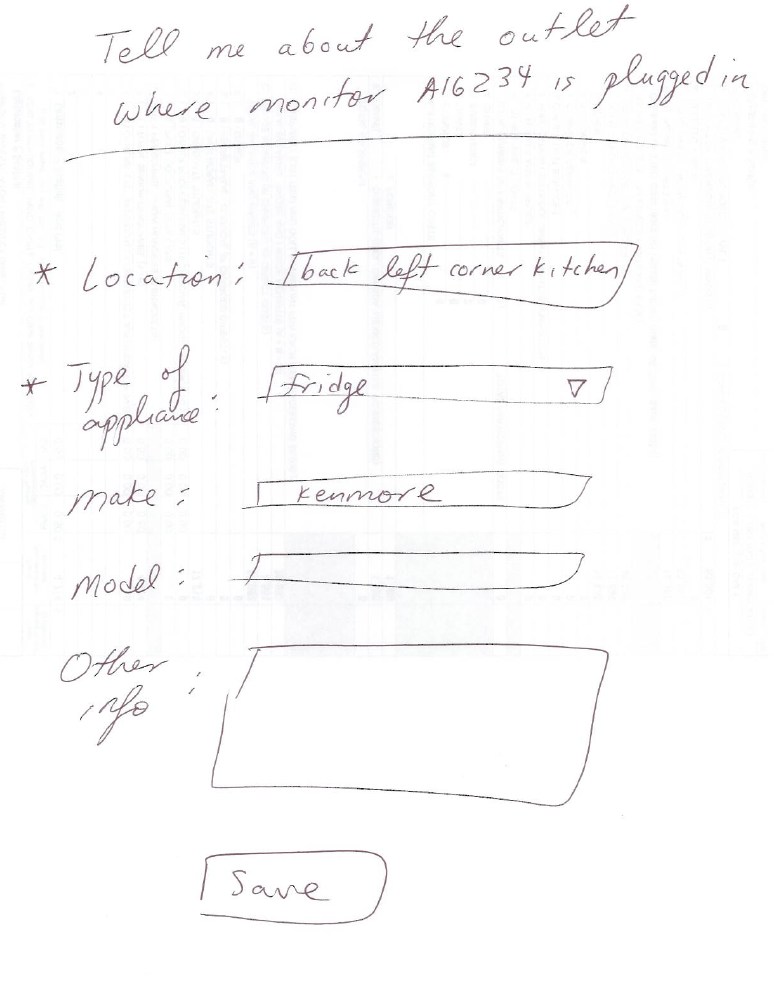 Tell me about the outlet
where monitor A16234 is plugged in
* Location: back left corner kitchen
* Type of
appliance: fridge
make: Kenmore
Model:
Other
info:
Save